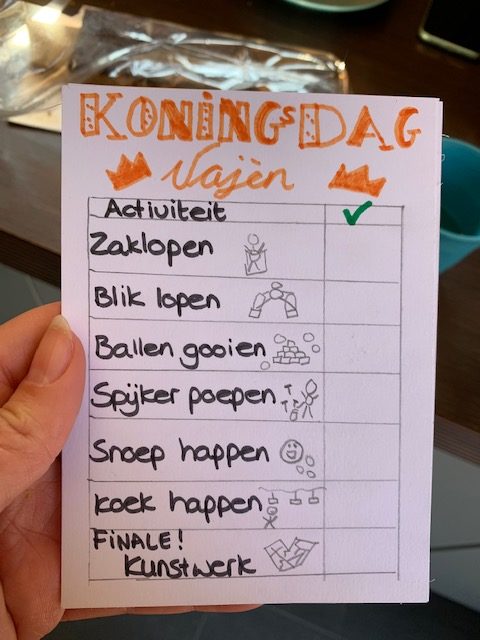 KONINGsDAG
Vajèn
Activiteit ✓
Zaklopen
Blik lopen
Ballen gooien
Spijker poepen
Snoep happen
koek happen
FiNALE!
Kunstwerk